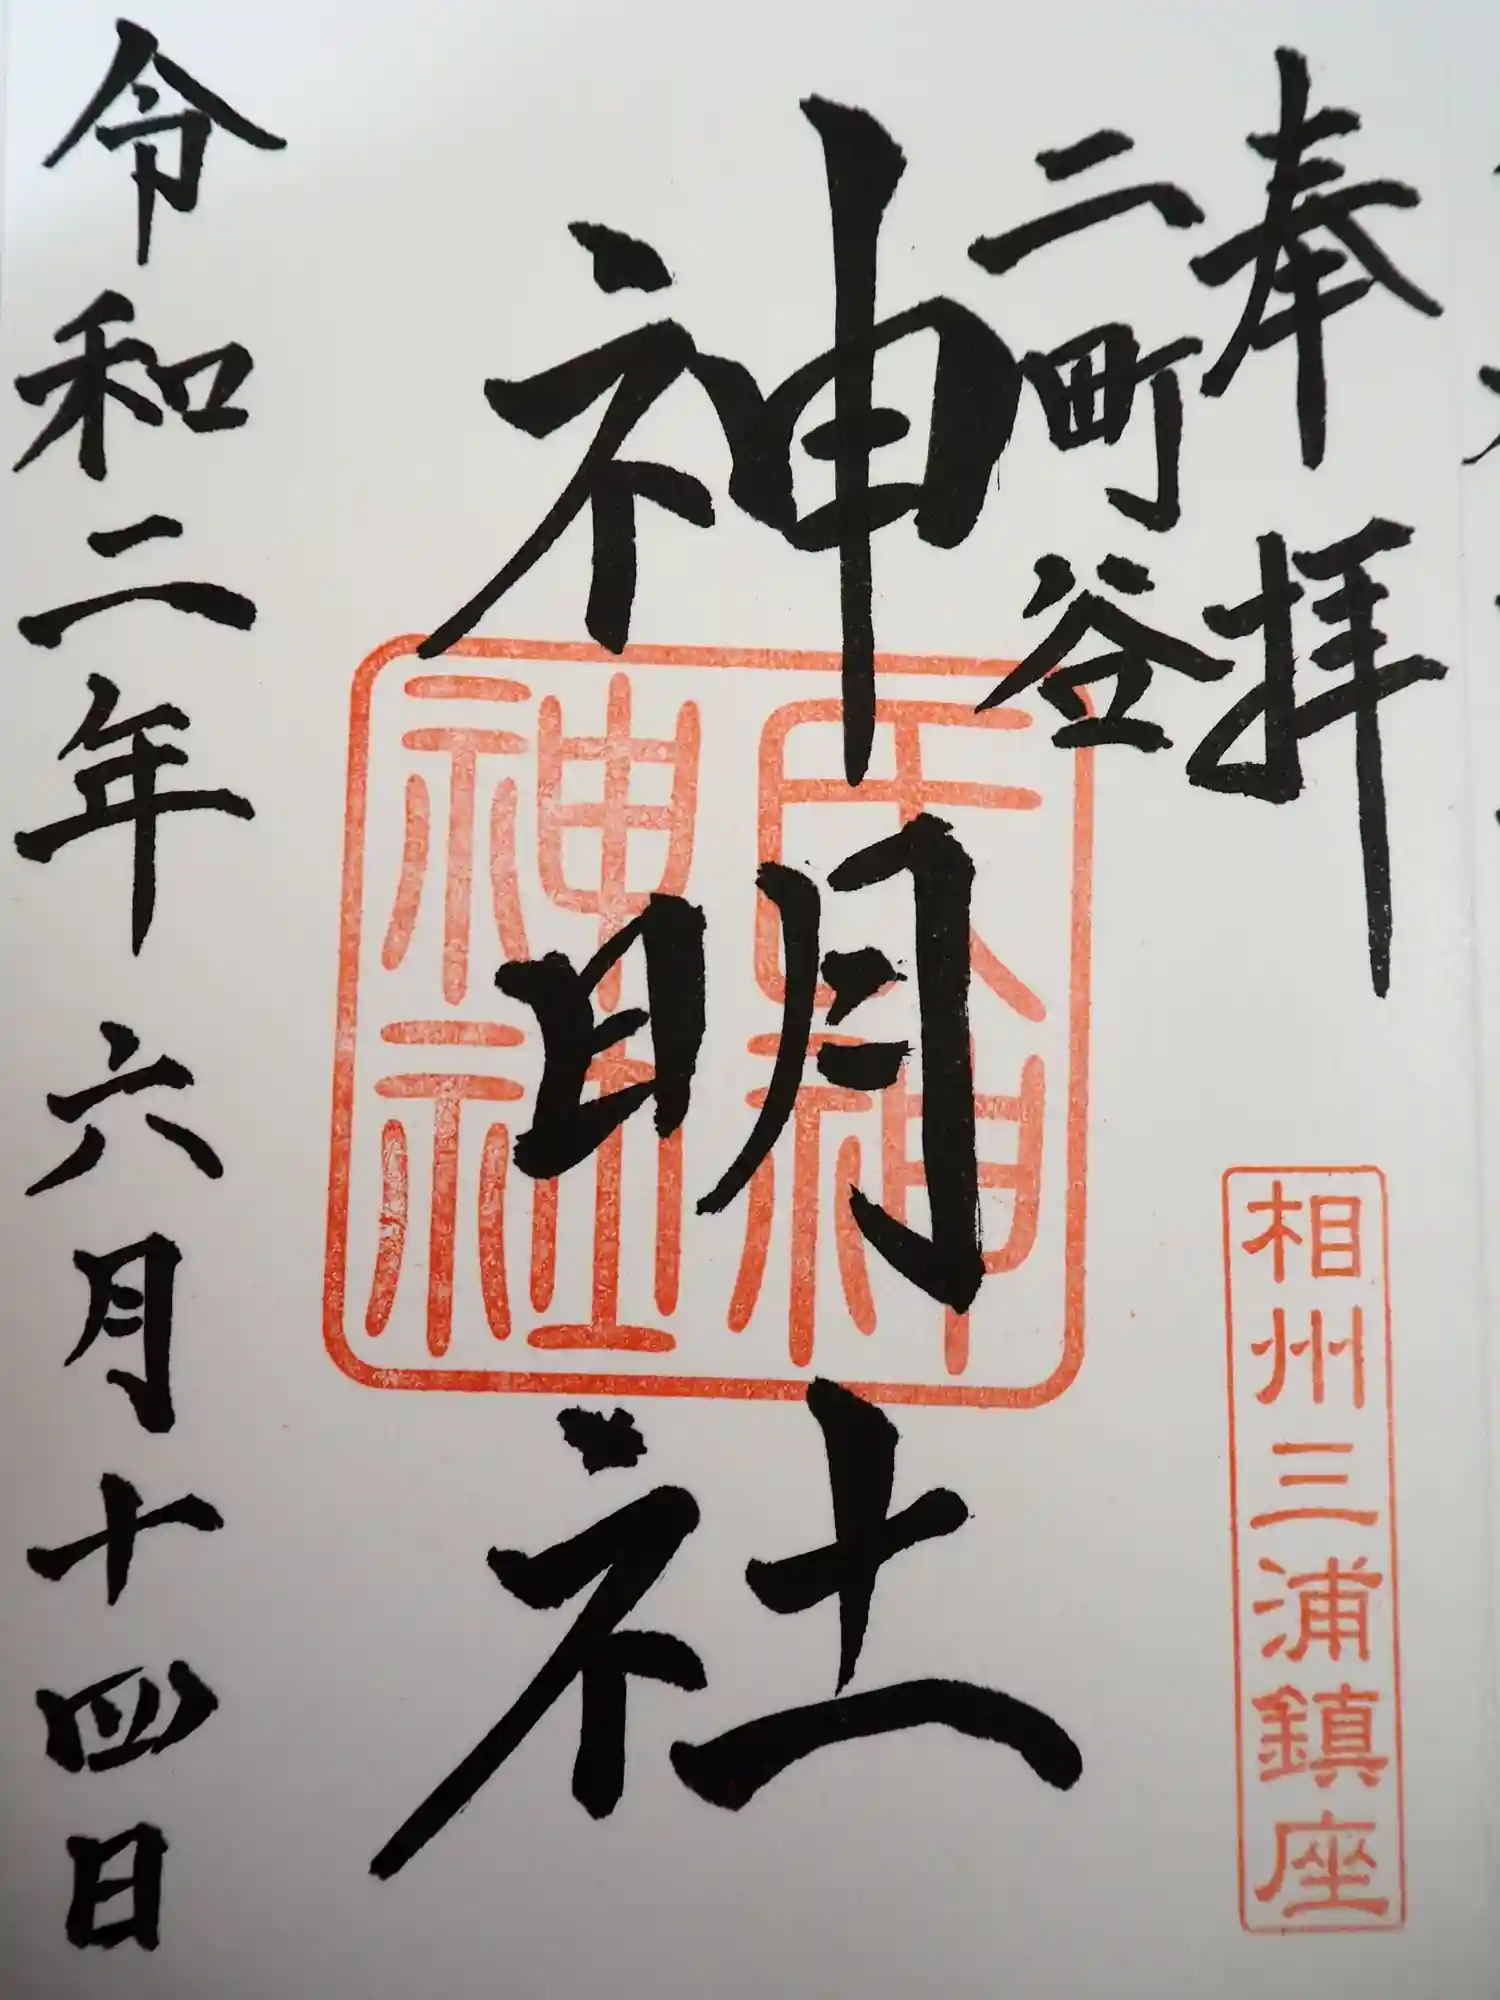 奉拝
相州三浦鎮座
二町谷
神明社
氏神
神社
令和二年六月十四日